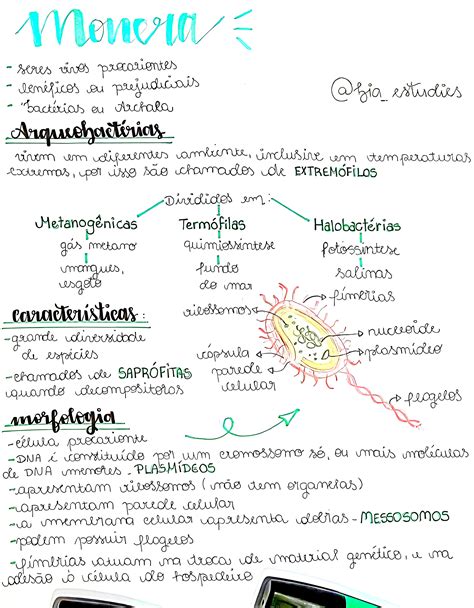 Monera
- seres vivos procariontes
- benéficos ou prejudiciais
- bactérias ou Archaea
@bia_estudies
Arqueobactérias
vivem em diferentes ambiente, inclusive em temperaturas
extremas, por isso são chamados de EXTREMÓFILOS
Divididos em:
Metanogênicas Termófilas Halobactérias
gás metano quimiossíntese fotossíntese
mangues, fundo salinas
esgoto do mar
fímbrias
ribossomos
características:
- grande diversidade
de espécies
nucleoide
cápsula plasmídeo
- chamados de SAPRÓFITAS parede
quando decompositoras celular
flagelos
morfologia
- célula procarionte
- DNA é constituído por um cromossomo só, ou mais moléculas
de DNA menores - PLASMÍDEOS
- apresentam ribossomos (não tem organelas)
- apresentam parede celular
- a membrana celular apresenta dobras - MESSOSOMOS
- podem possuir flagelos
- fímbrias atuam na troca de material genético, e na
adesão à célula do hospedeiro